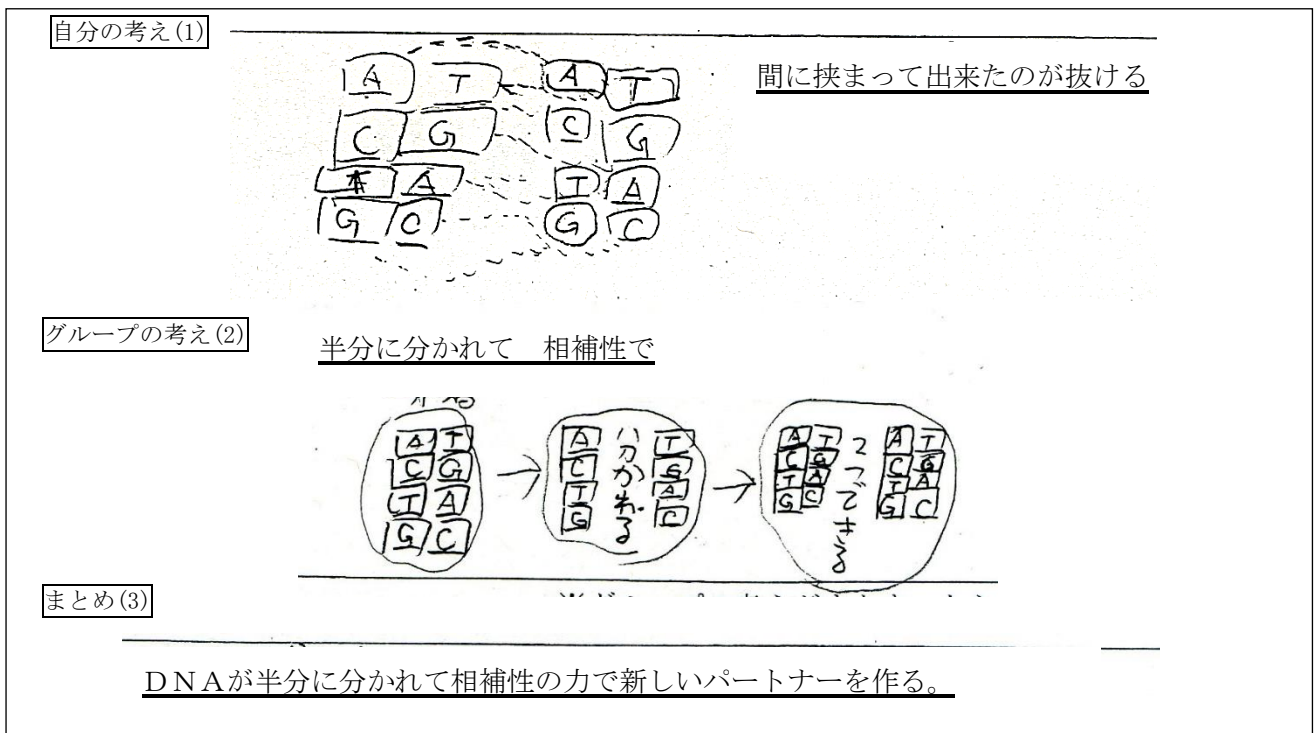 自分の考え(1)
A T A T
C G C G
T A T A
G C G C
間に挟まって出来たのが抜ける
グループの考え(2)
半分に分かれて 相補性で
A T
C G
T A
G C
A T
C G
T A
G C
分かれる
A T A T
C G C G
T A T A
G C G C
2つできる
まとめ(3)
DNAが半分に分かれて相補性の力で新しいパートナーを作る。